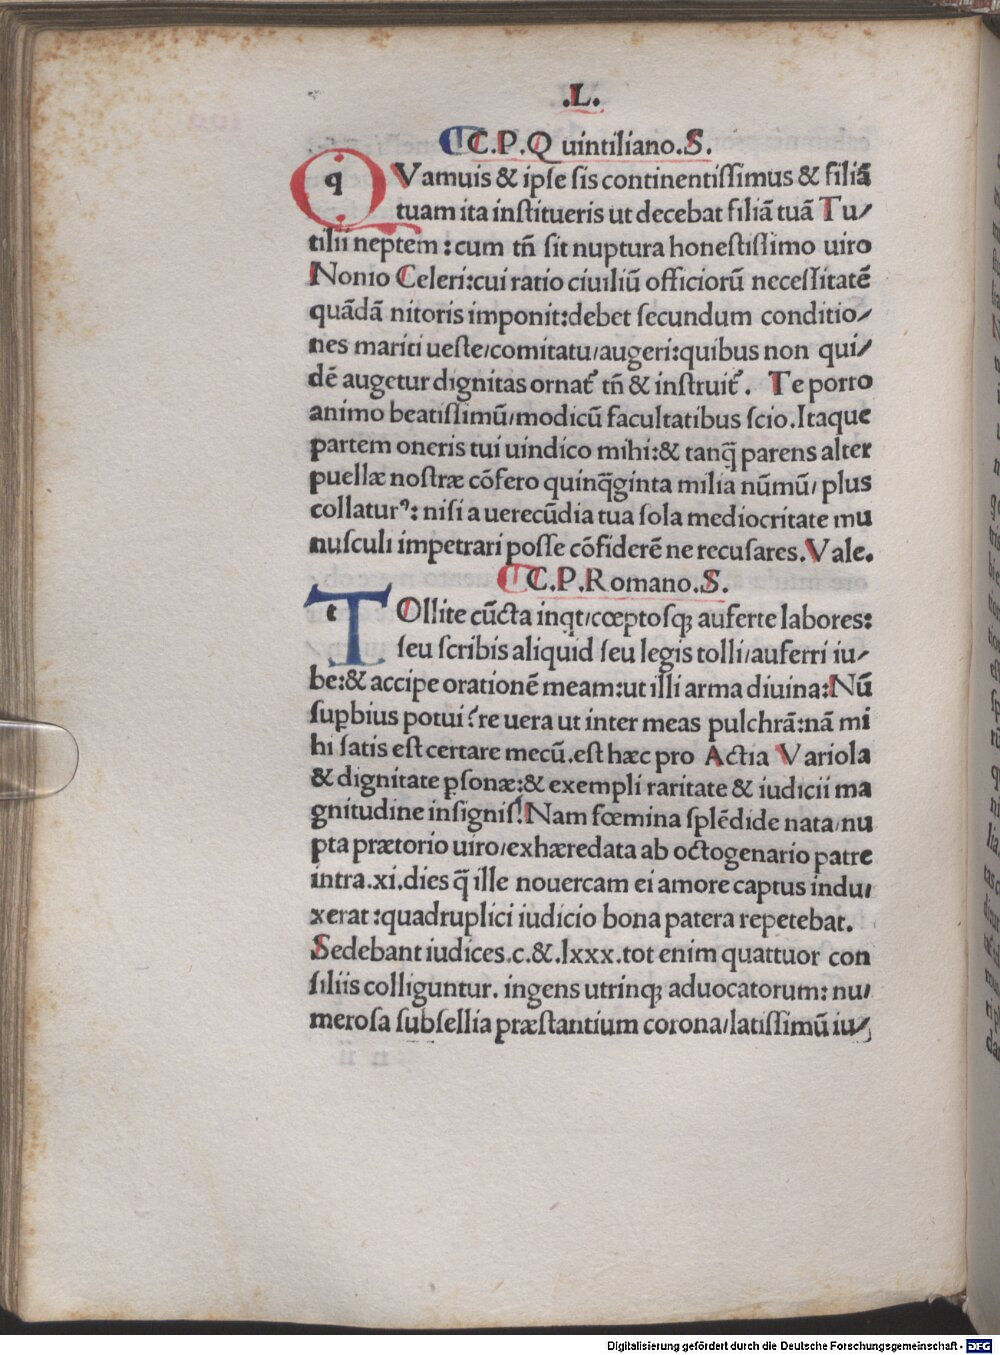 .L.
C.P.Quintiliano.S.
QVamuis & ipſe ſis continentiſſimus & filiā
tuam ita inſtitueris ut decebat filiā tuā Tu/
tilii neptem: cum tñ ſit nuptura honeſtiſſimo uiro
Nonio Celeri:cui ratio ciuiliū officiorū neceſſitatē
quādā nitoris imponit:debet ſecundum conditio/
nes mariti ueſte/comitatu/augeri:quibus non qui/
dē augetur dignitas ornat᷑ tñ & inſtruit᷑. Te porro
animo beatiſſimū/modicū facultatibus ſcio.Itaque
partem oneris tui uindico mihi:& tanq̄ parens alter
puellæ noſtræ cōfero quinq̄ginta milia nūmū/ plus
collaturꝰ: niſi a uerecūdia tua ſola mediocritate mu
nuſculi impetrari poſſe cōfiderē ne recuſares.Vale.
C.P.Romano.S.
TOllite cūcta inqt/cœptoſqꝫ auferte labores:
ſeu ſcribis aliquid ſeu legis tolli/auferri iu/
be:& accipe orationē meam:ut illi arma diuina:Nū
ſupbius potui?re uera ut inter meas pulchrā:nā mi
hi ſatis eſt certare mecū.eſt hæc pro Actia Variola
& dignitate pſonæ:& exempli raritate & iudicii ma
gnitudine inſignis!Nam fœmina ſplēdide nata/nu
pta prætorio uiro/exhæredata ab octogenario patre
intra.xi.dies q̄ ille nouercam ei amore captus indu/
xerat:quadruplici iudicio bona patera repetebat.
Sedebant iudices.c.&.lxxx.tot enim quattuor con
ſiliis colliguntur. ingens utrinqꝫ aduocatorum: nu/
meroſa ſubſellia præſtantium corona/latiſſimū iu/
Digitalisierung gefördert durch die Deutsche Forschungsgemeinschaft - DFG